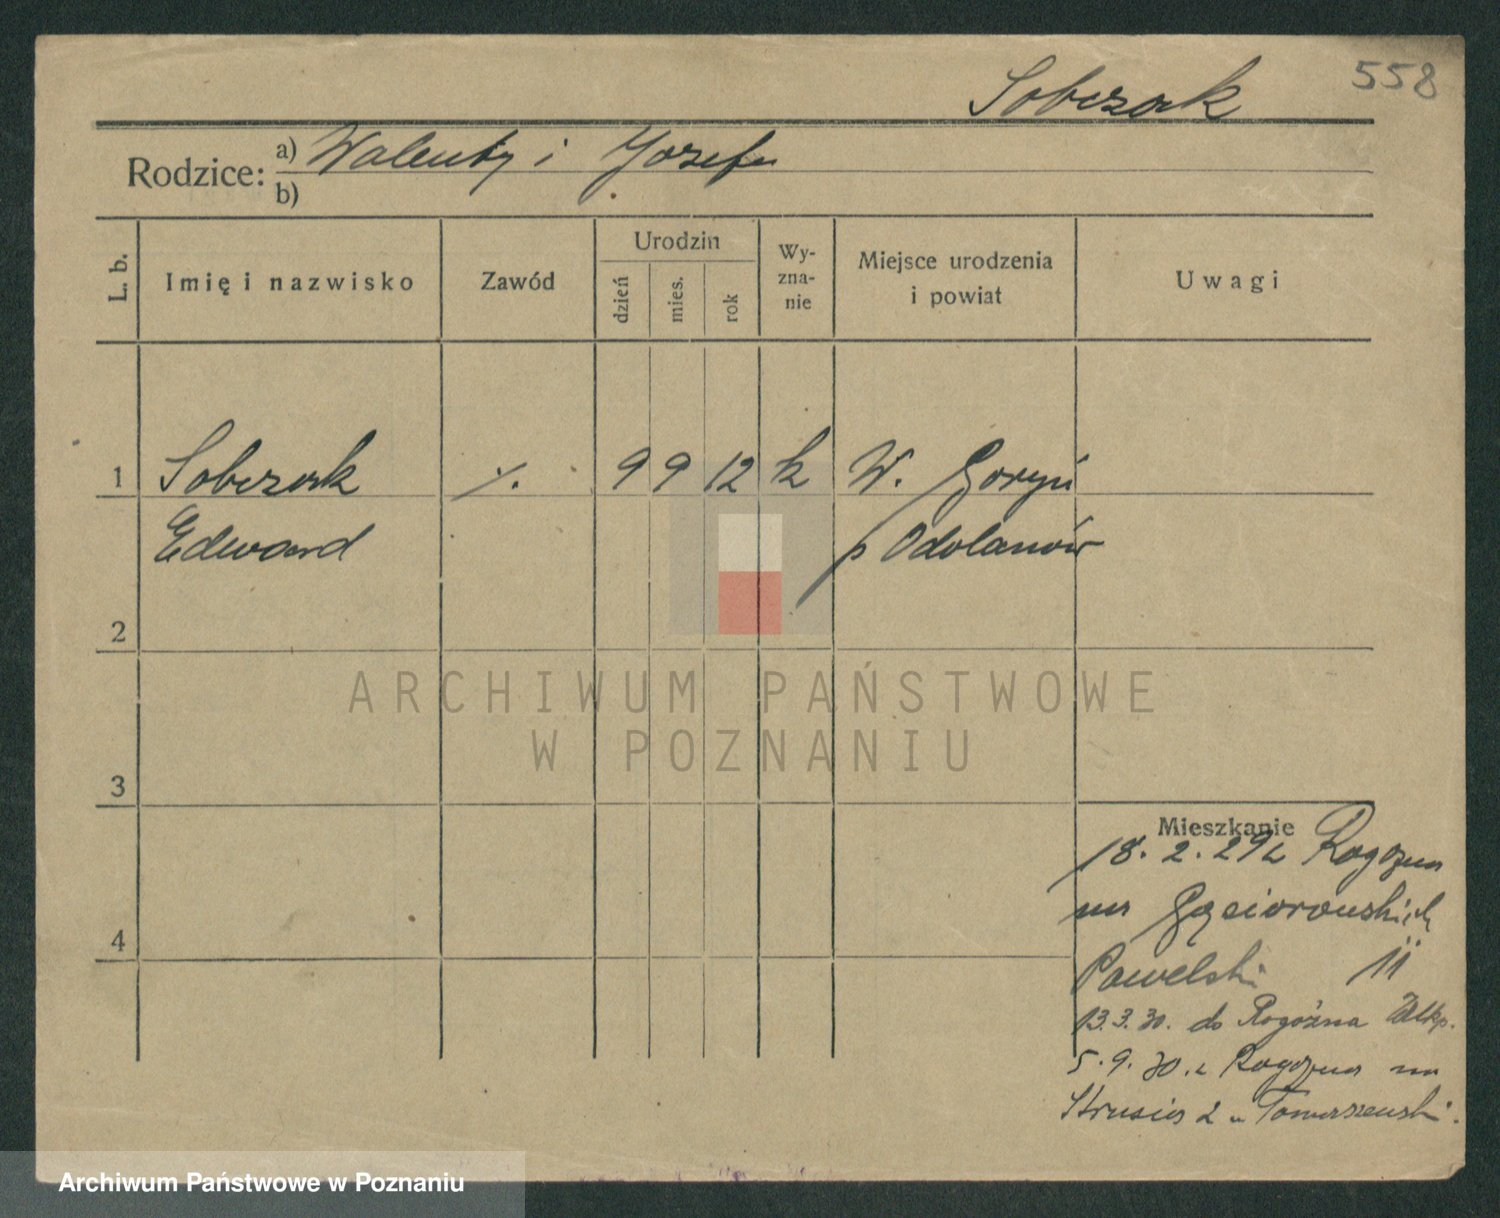 558
Sobczak
Rodzice: a) Walenty i Jozefa
b)
L. b. Imię i nazwisko Zawód Urodzin dzień mies. rok Wyznanie Miejsce urodzenia i powiat Uwagi
1 Sobczak ·/. 9 9 12 k W. Goryń
Edward p Odolanów
2
3
Mieszkanie
18. 2. 29 z Rogozna
na Gąsiorowskich
4
Pawelski 11
13.3.30. do Rogoźna Wlkp.
5. 9. 30. z Rogozna na
Strusia 2 u Tomaszewski.
ARCHIWUM PAŃSTWOWE
W POZNANIU
Archiwum Państwowe w Poznaniu